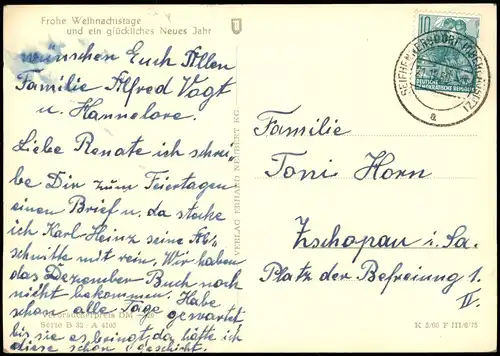 Frohe Weihnachtstage
und ein glückliches Neues Jahr
wünschen Euch Allen
Familie Alfred Vogt
u. Hannelore.
Liebe Renate ich schrei-
be Dir zum Feiertagen
einen Brief u. da stecke
ich Karl-Heinz seine Ab-
schnitte mit rein, Wir haben
das Dezember Buch noch
nicht bekommen. Habe
schon alle Tage gewartet
bis sie es bringt, da hätte ich
diese schon geschickt.
Verbraucherpreis DM
Serie B 32 / A 4103
VERLAG ERHARD NEUBERT KG.
10
DEUTSCHE
DEMOKRATISCHE REPUBLIK
SEIFHENNERSDORF (OBERLAUSITZ)
a
Familie
Toni Horn
Zschopau i. Sa.
Platz der Befreiung 1.
II.
K 5/60 F III/6/15